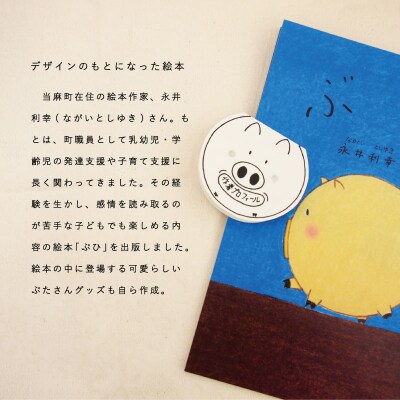 デザインのもとになった絵本
当麻町在住の絵本作家、永井
利幸(ながいとしゆき)さん。も
とは、町職員として乳幼児・学
齢児の発達支援や子育て支援に
長く関わってきました。その経
験を生かし、感情を読み取るの
が苦手な子どもでも楽しめる内
容の絵本「ぶひ」を出版しました。
絵本の中に登場する可愛らしい
ぶたさんグッズも自ら作成。
ぶ
永井利幸
作者プロフィール